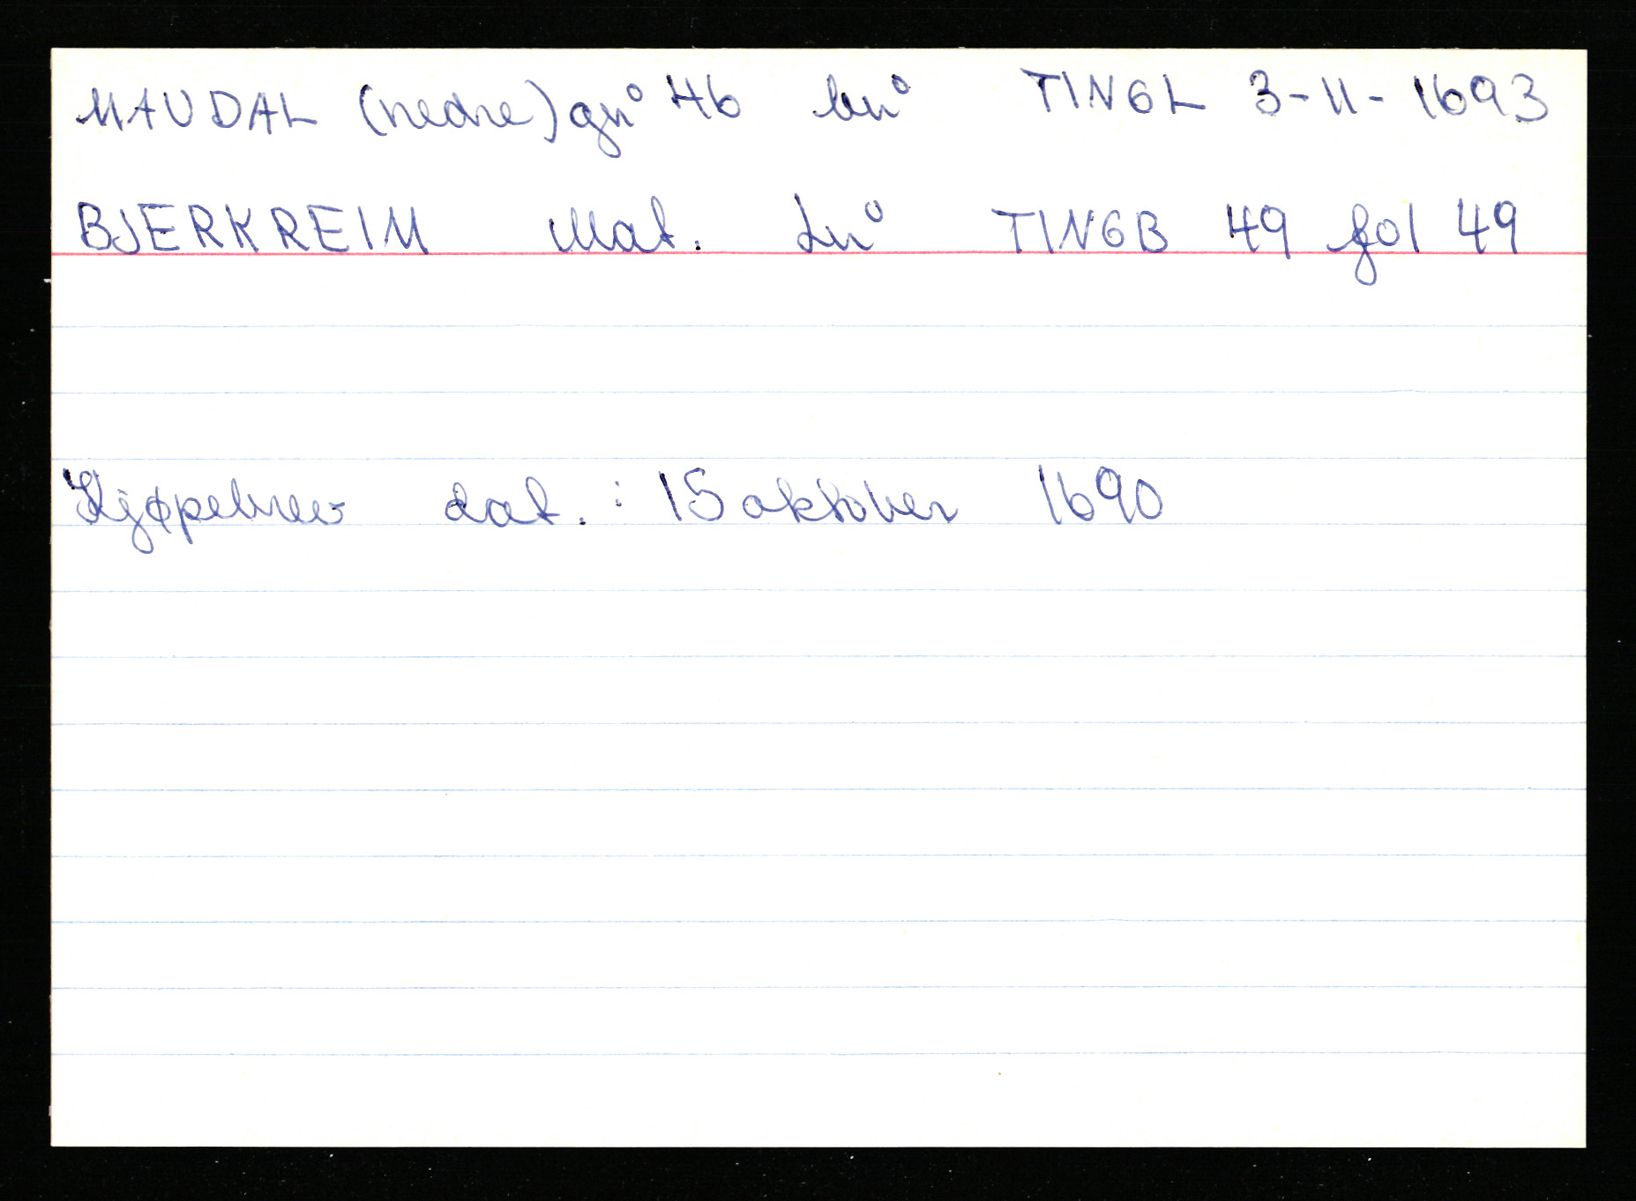 MAUDAL (nedre) gn° 46 bn° TINGL 3-11-1693
BJERKREIM Mat. Ln° TINGB 49 fol 49
Kjøpebrev dat. : 15 oktober 1690